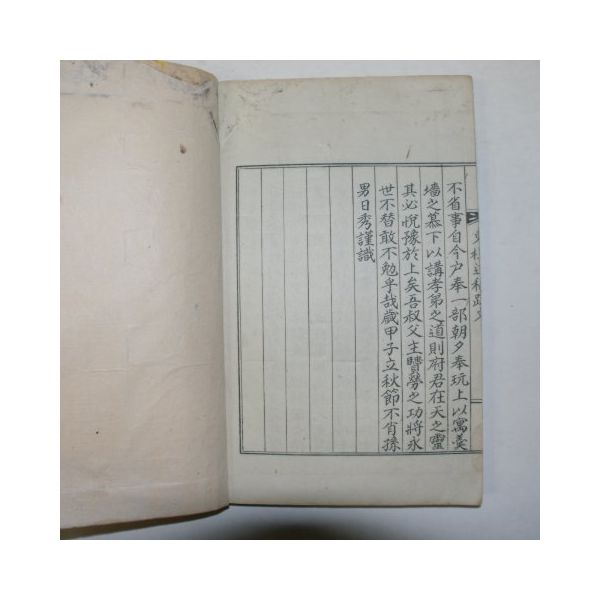 不省事自今戶奉一部朝夕奉玩上以寓羹
墻之慕下以講孝弟之道則府君在天之靈
其必悅豫於上矣吾叔父主賢勞之功將永
世不替敢不勉乎哉歲甲子立秋節不肖孫
男日秀謹識